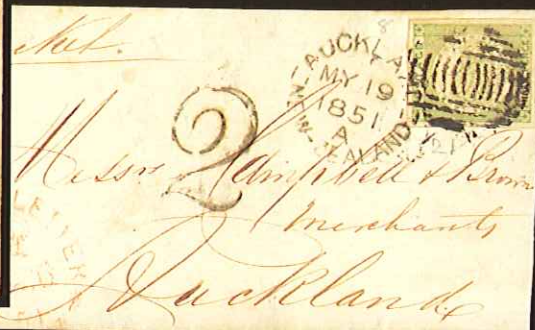 AUCKLA
MY 19
1851
A
NEW-ZEALAND
2
Messrs Campbell & Brown
Merchants
Auckland
LETTER